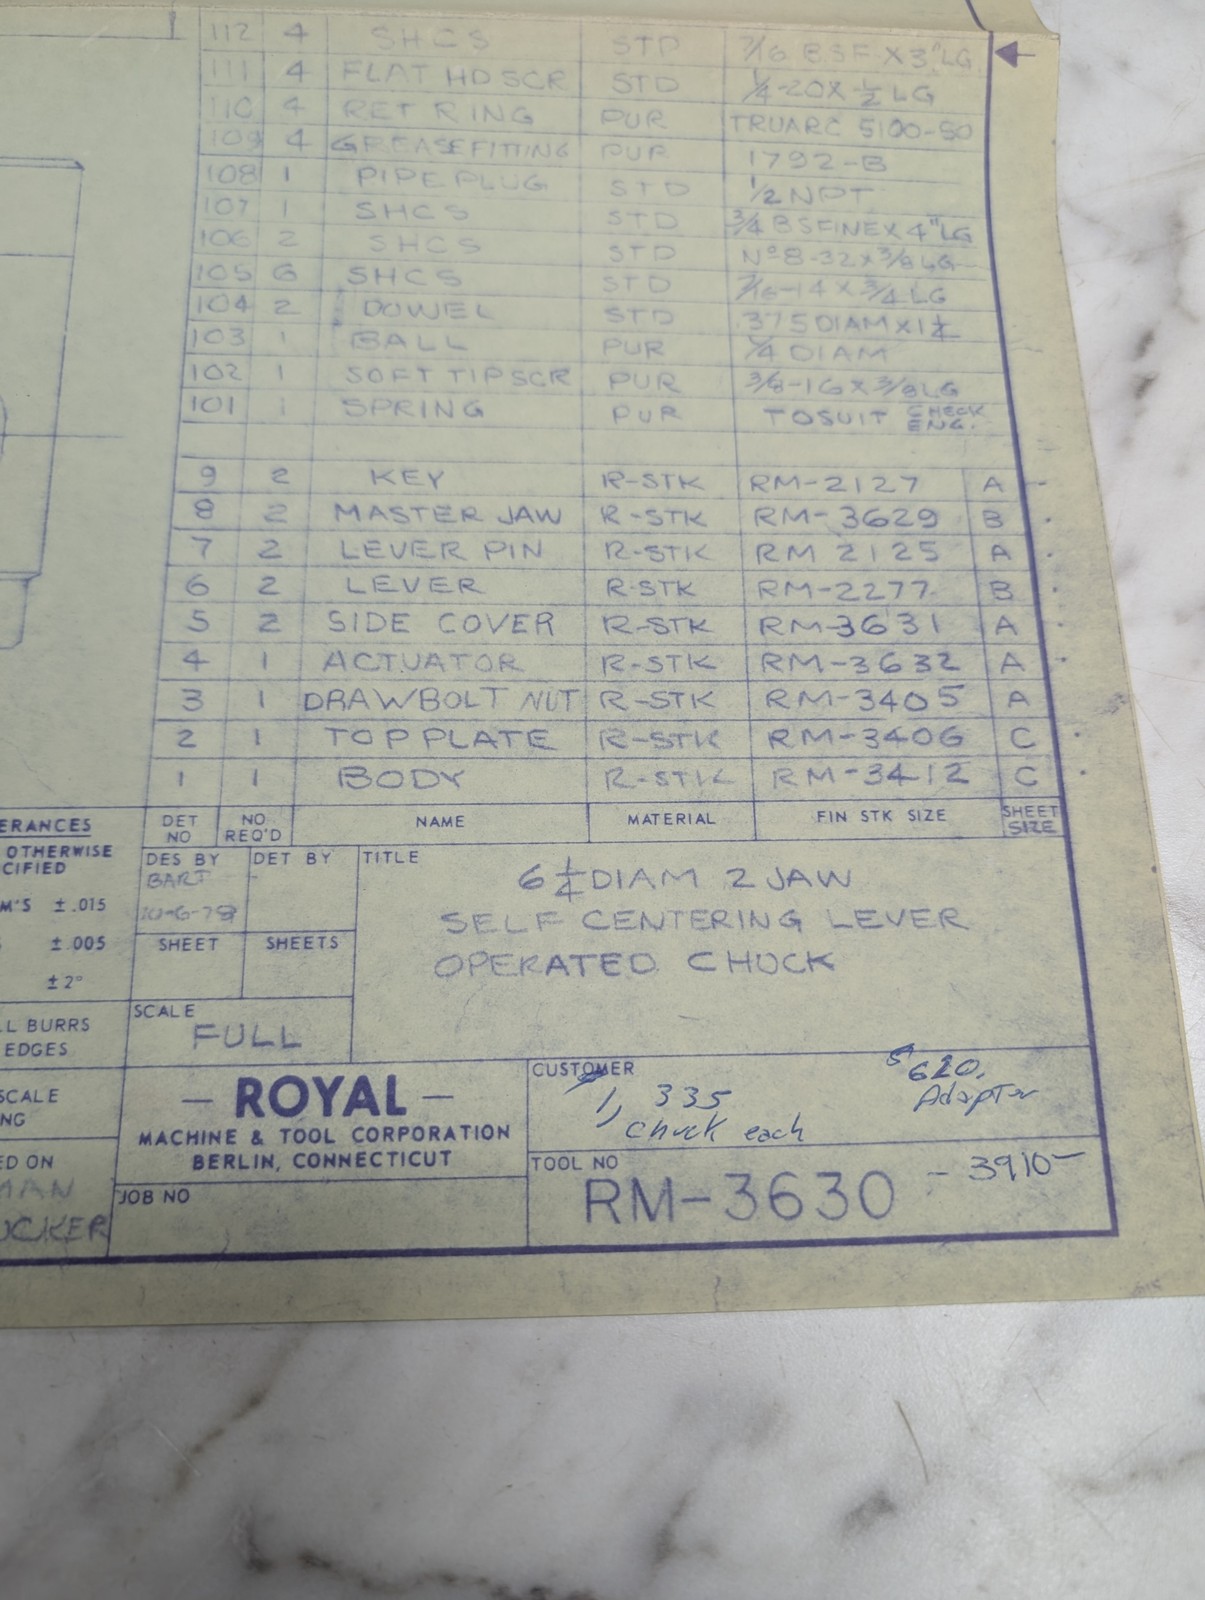 112 4 SHCS STD 7/16 BSF X 3" LG
111 4 FLAT HD SCR STD 1/4-20 X 1/2 LG
110 4 RET RING PUR TRUARC 5100-50
109 4 GREASE FITTING PUR 1792-B
108 1 PIPE PLUG STD 1/2 NPT
107 1 SHCS STD 3/4 BSFINE X 4" LG
106 2 SHCS STD Nº 8-32 X 3/8 LG
105 6 SHCS STD 7/16-14 X 3/4 LG
104 2 DOWEL STD .375 DIAM X 1 1/2
103 1 BALL PUR 1/4 DIAM
102 1 SOFT TIP SCR PUR 3/8-16 X 3/8 LG
101 1 SPRING PUR TO SUIT CHECK ENG.
9 2 KEY R-STK RM-2127 A
8 2 MASTER JAW R-STK RM-3629 B
7 2 LEVER PIN R-STK RM 2125 A
6 2 LEVER R-STK RM-2277 B
5 2 SIDE COVER R-STK RM-3631 A
4 1 ACTUATOR R-STK RM-3632 A
3 1 DRAWBOLT NUT R-STK RM-3405 A
2 1 TOP PLATE R-STK RM-3406 C
1 1 BODY R-STK RM-3412 C
DET NO NO REQ'D NAME MATERIAL FIN STK SIZE SHEET SIZE
ERANCES
OTHERWISE
CIFIED
M'S ±.015
±.005
±2°
L BURRS
EDGES
SCALE
NG
ED ON
MAN
UCKER
DES BY
BART
10-6-78
DET BY
SHEET SHEETS
SCALE
FULL
TITLE
6 1/4 DIAM 2 JAW
SELF CENTERING LEVER
OPERATED CHUCK
- ROYAL -
MACHINE & TOOL CORPORATION
BERLIN, CONNECTICUT
JOB NO
CUSTOMER
1, 335
chuck each
620.
Adapter
TOOL NO
RM-3630 - 3910-